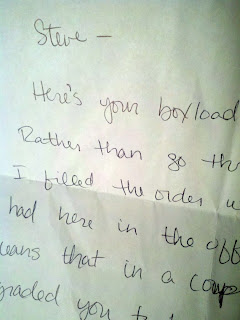 Steve —
Here's your boxload
Rather than go thr
I filled the order w
had here in the off
eans that in a coup
graded you t